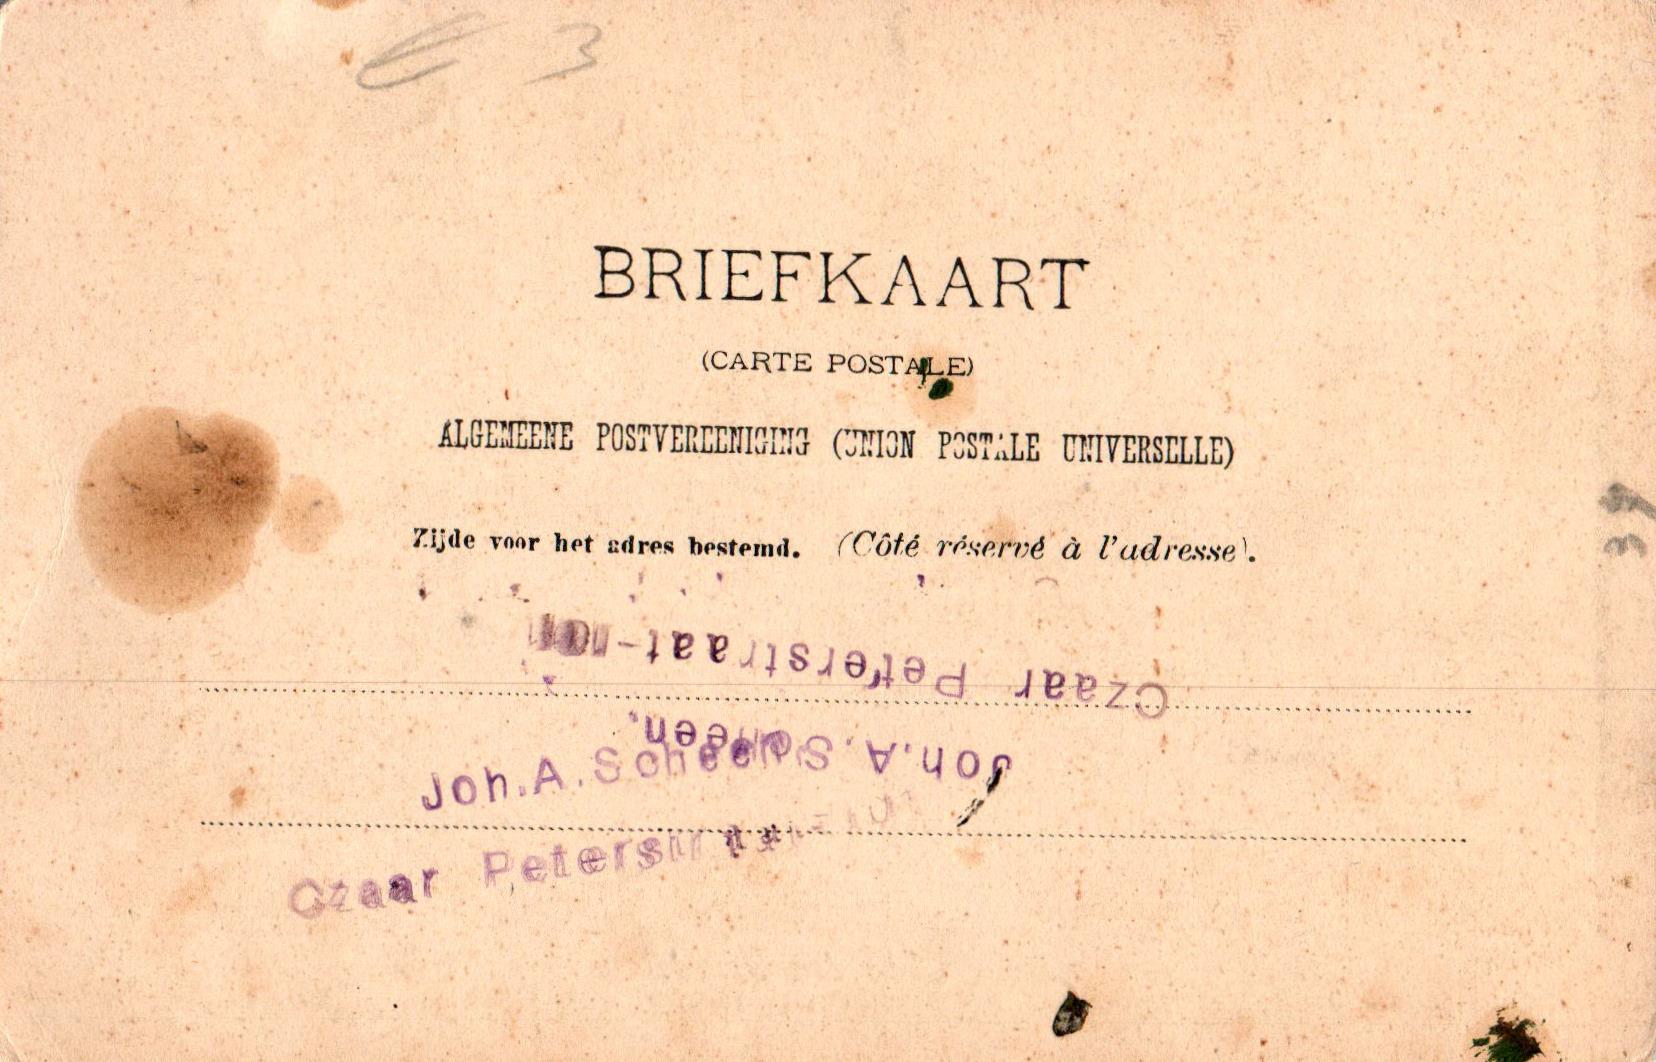 € 3
BRIEFKAART
(CARTE POSTALE)
ALGEMEENE POSTVEREENIGING (UNION POSTALE UNIVERSELLE)
Zijde voor het adres bestemd. (Côté réservé à l'adresse).
Czaar Peterstraat-
Joh.A.Scheen.
Joh.A.Scheen
Czaar Peterstraat-
39